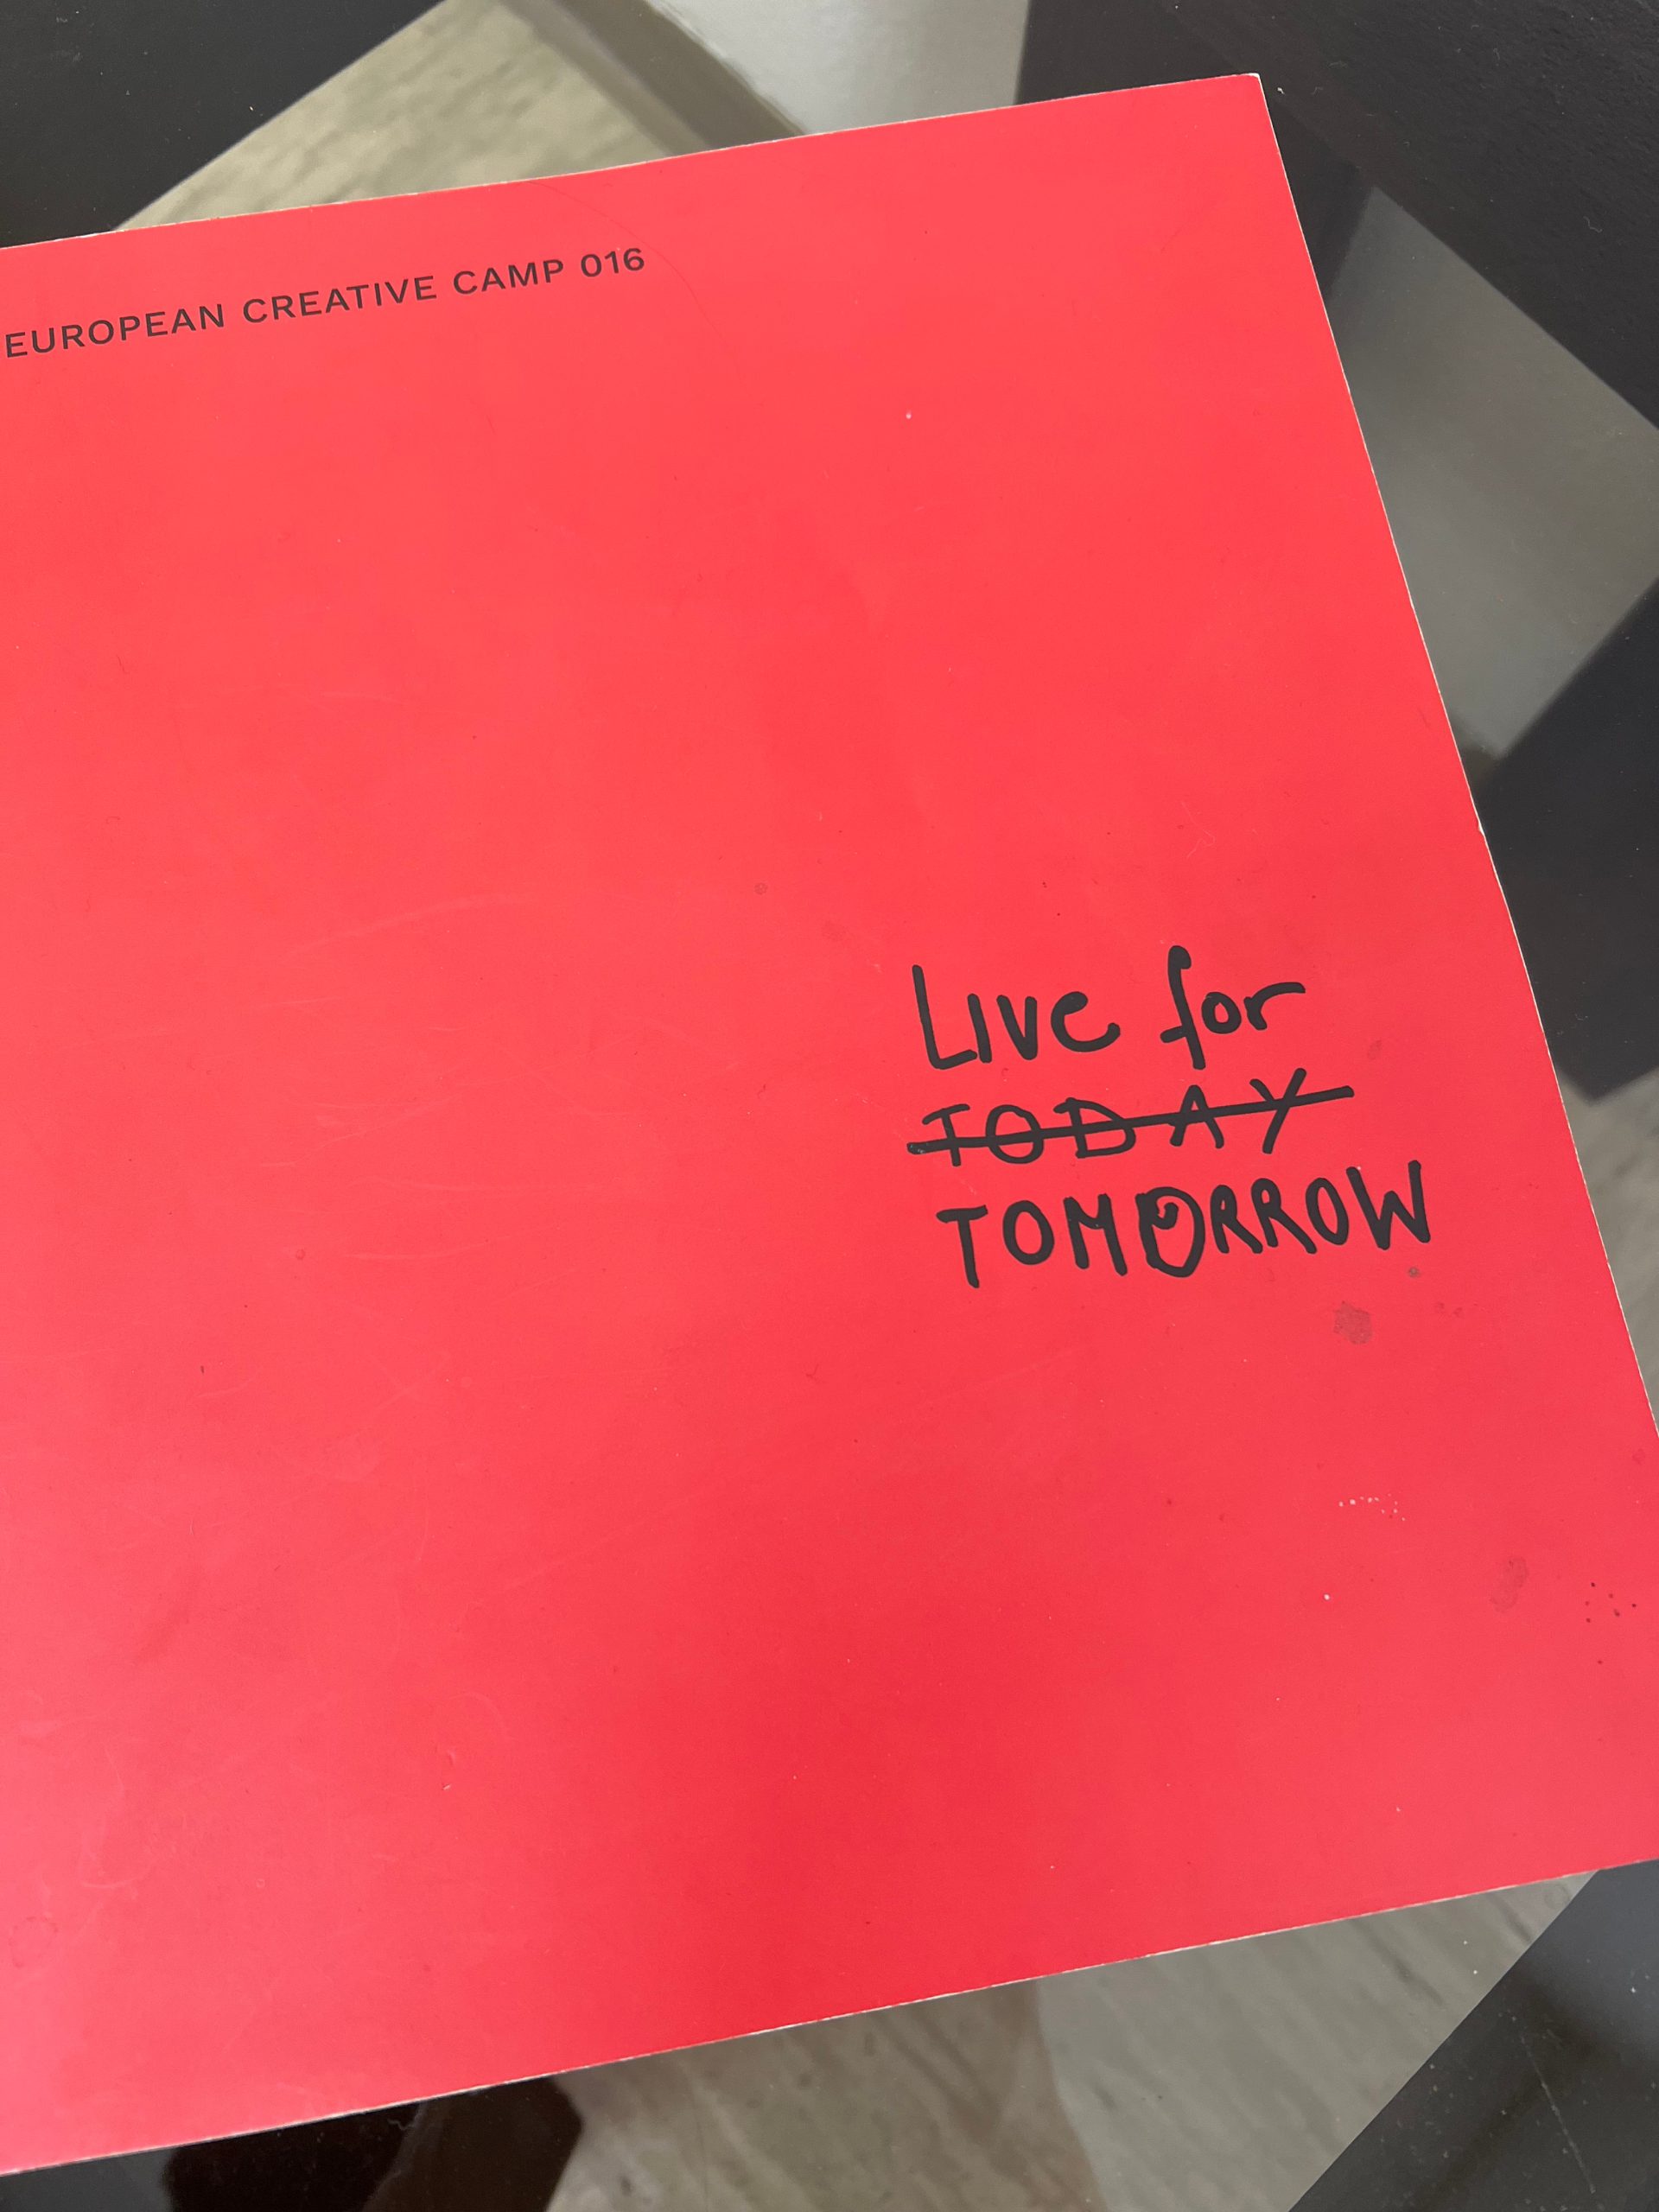 EUROPEAN CREATIVE CAMP 016
Live for
TODAY
TOMORROW